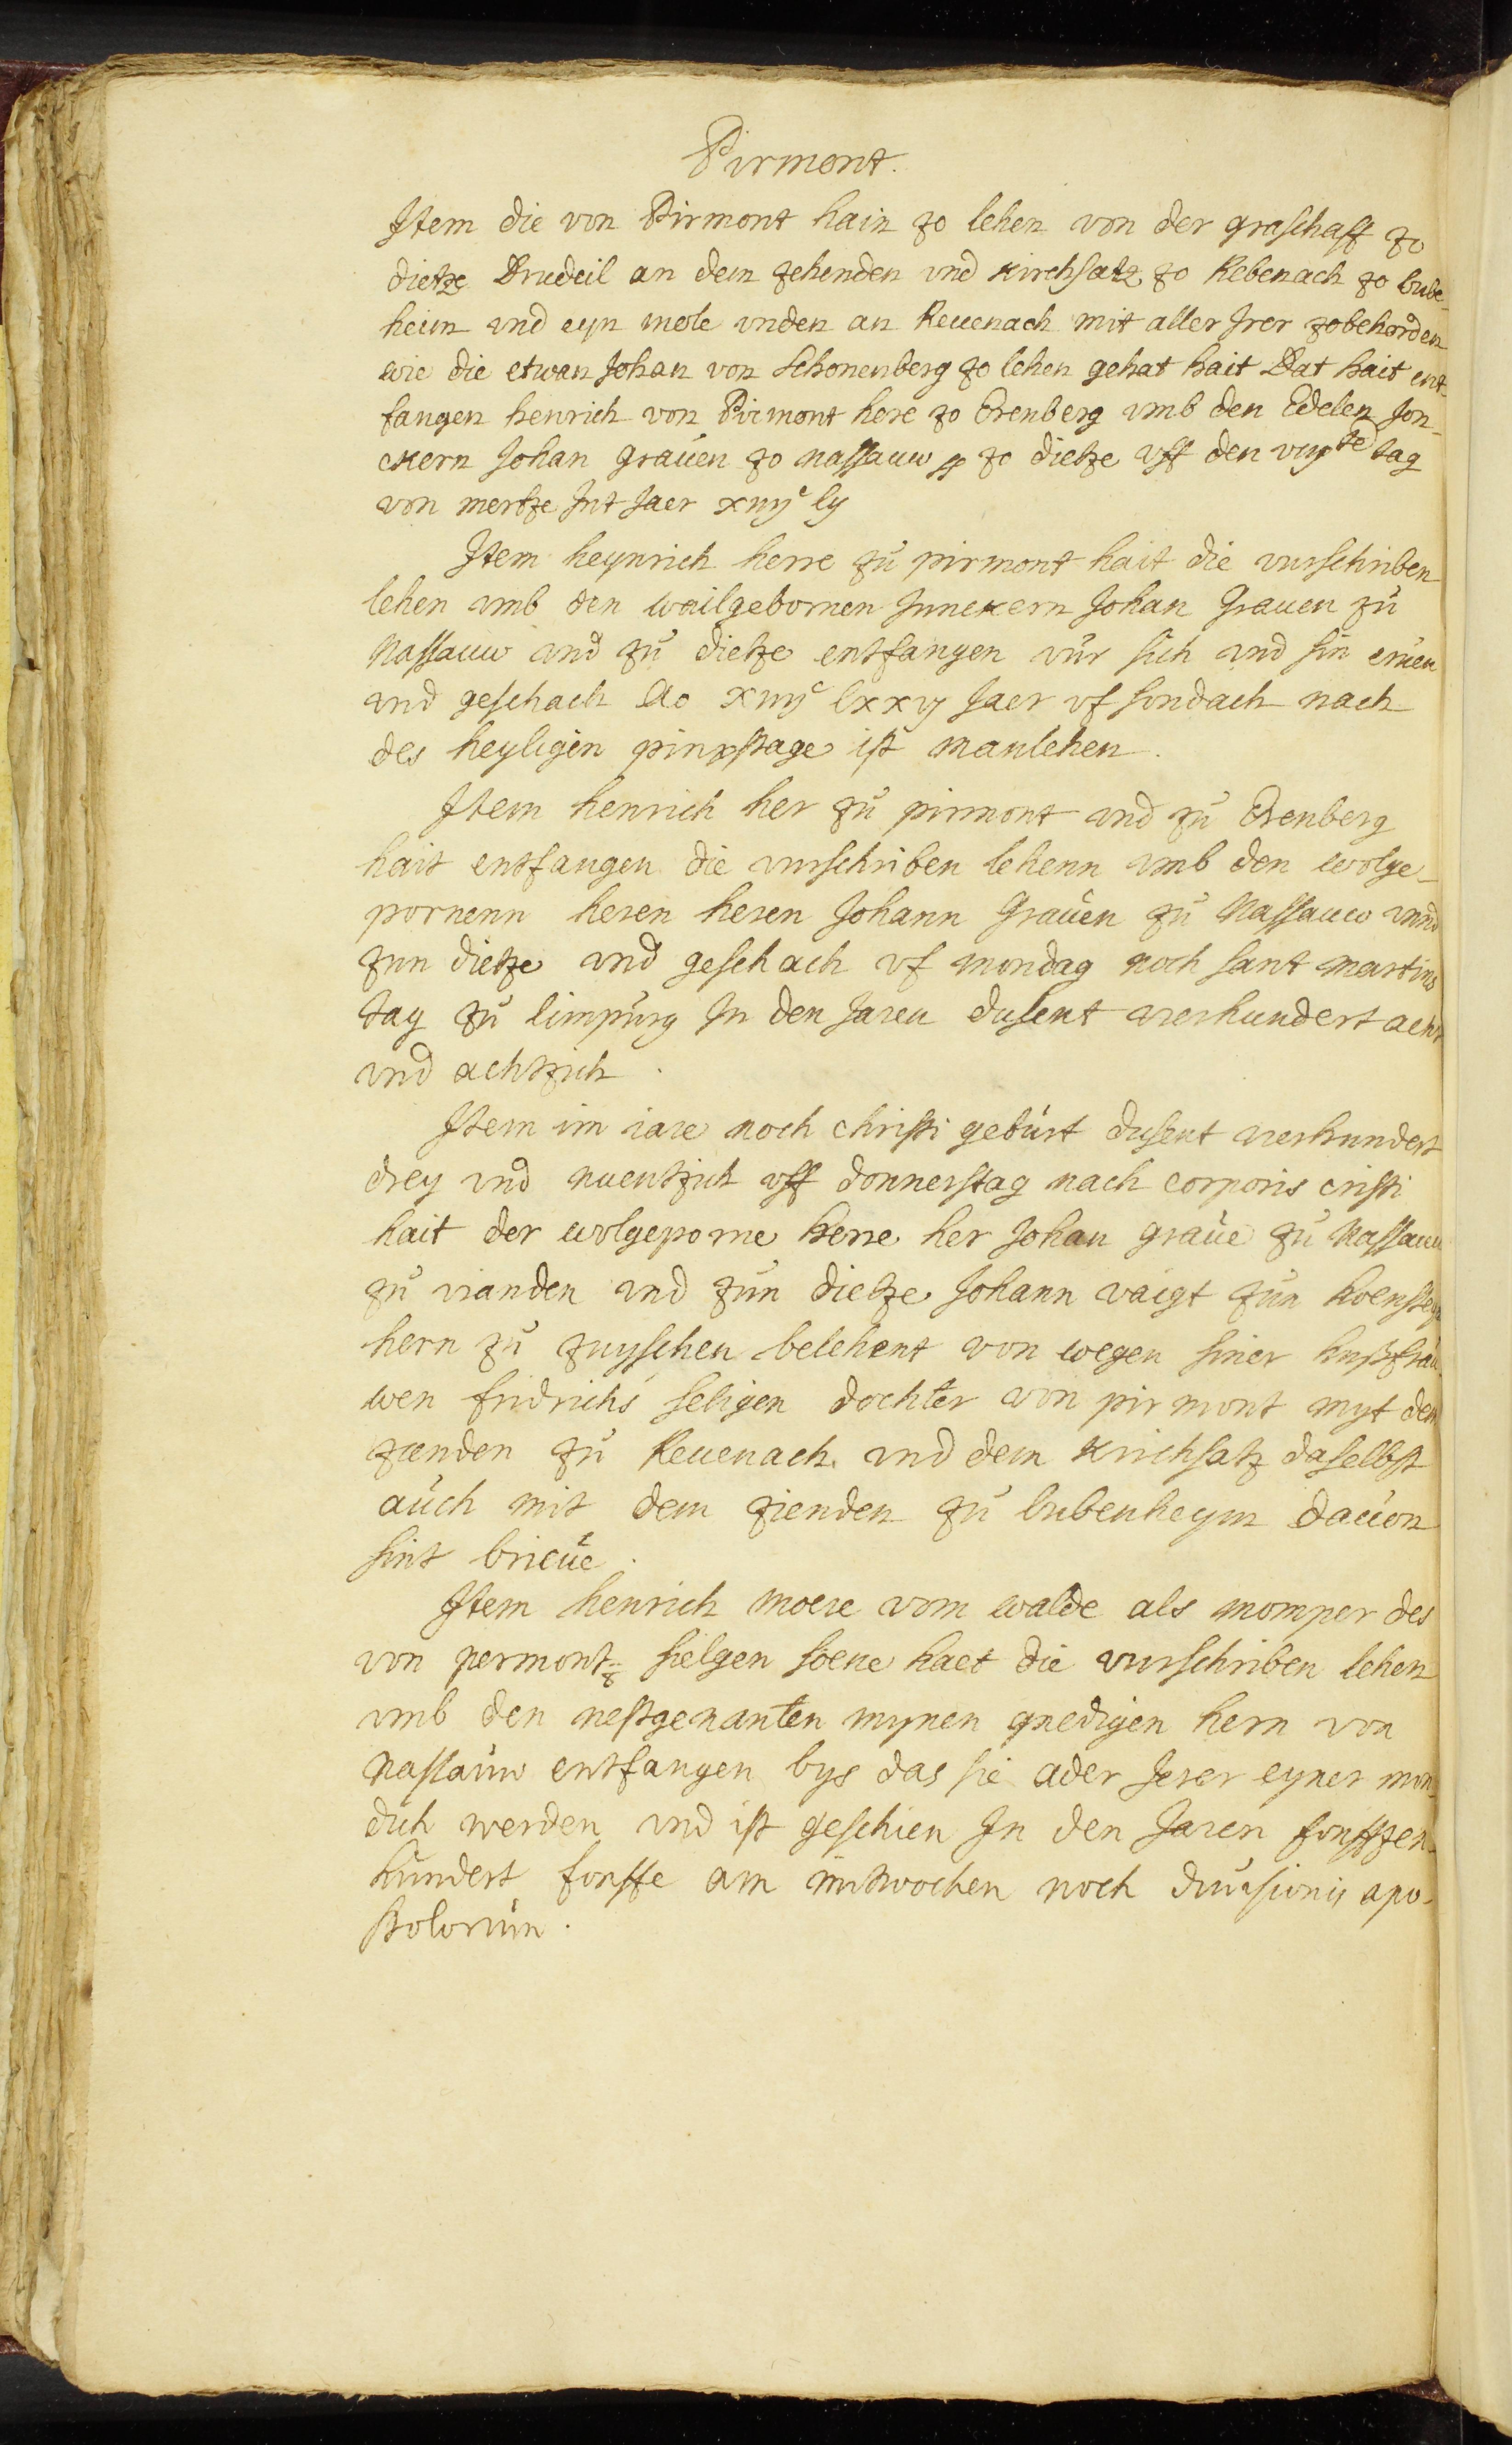 Pirmont.
Jtem die von Pirmont hain zo lehen von der graschaff zo
dietze Drudeil an dem zehenden vnd kirchsatz zo Rebenach zo bube¬
heim vnd eyn mole vnden an Reuenach mit aller Jrer zobehorden
wie die etwan Johan von Schonenberg zo lehen gehat hait Dat hait ent¬
fangen henrich von Pirmont here zo Erenberg vmb den Edelen Jon¬
ckern Johan Grauen zo nassauw zo dietze vff den viijte tag
von mertze Jnt Jaer xiiijc lij
Jtem heynrich herre zu pirmont hait die vurschriben
lehen vmb den wailgebornen Junckern Johan Grauen zu
Nassauw vnd zu dietze entfangen vur sich vnd sin eruen
vnd geschach Ao xiiijc lxxvj Jaer vf sondach nach
des heyligen pinxstage ist manlehen.
Jtem henrich her zu pirmont vnd zu Erenberg
hait entfangen die vurschriben lehenn vmb den wolge¬
pornenn heren heren Johann Grauen zu Nassauw vnnd
zun dietze vnd geschach vf mondag noch sant martins
tag zu limpurg Jn den Jaren dusent vierhundert acht
vnd achtzich.
Jtem im iare noch christi geburt dusent vierhundert
drey vnd nuentzich vff donnerstag nach corporis cristi
hait der wolgeporne herre her Johan graue zu Nassauw
zu vianden vnd zun dietze Johann vaigt zun hoensteyn
hern zu zuyschen belehent von wegen siner hußfrau¬
wen fridrichs seligen dochter von pirmont myt dem
zienden zu Reuenach vnd dem kirchsatz daselbst
auch mit dem zienden zu bubenheym dauon
sint brieue.
Jtem henrich moere vom walde als momper des
von permontz sielgen soene haet die vurschriben lehen
vmb den nestgenanten mynen gnedigen hern von
Nassauw entfangen bys das sie ader Jerer eyner mon¬
dich werden vnd ist geschien Jn den Jaren fonffzen¬
hundert fonffe am mitwochen noch diuisionis apo¬
stolorum.